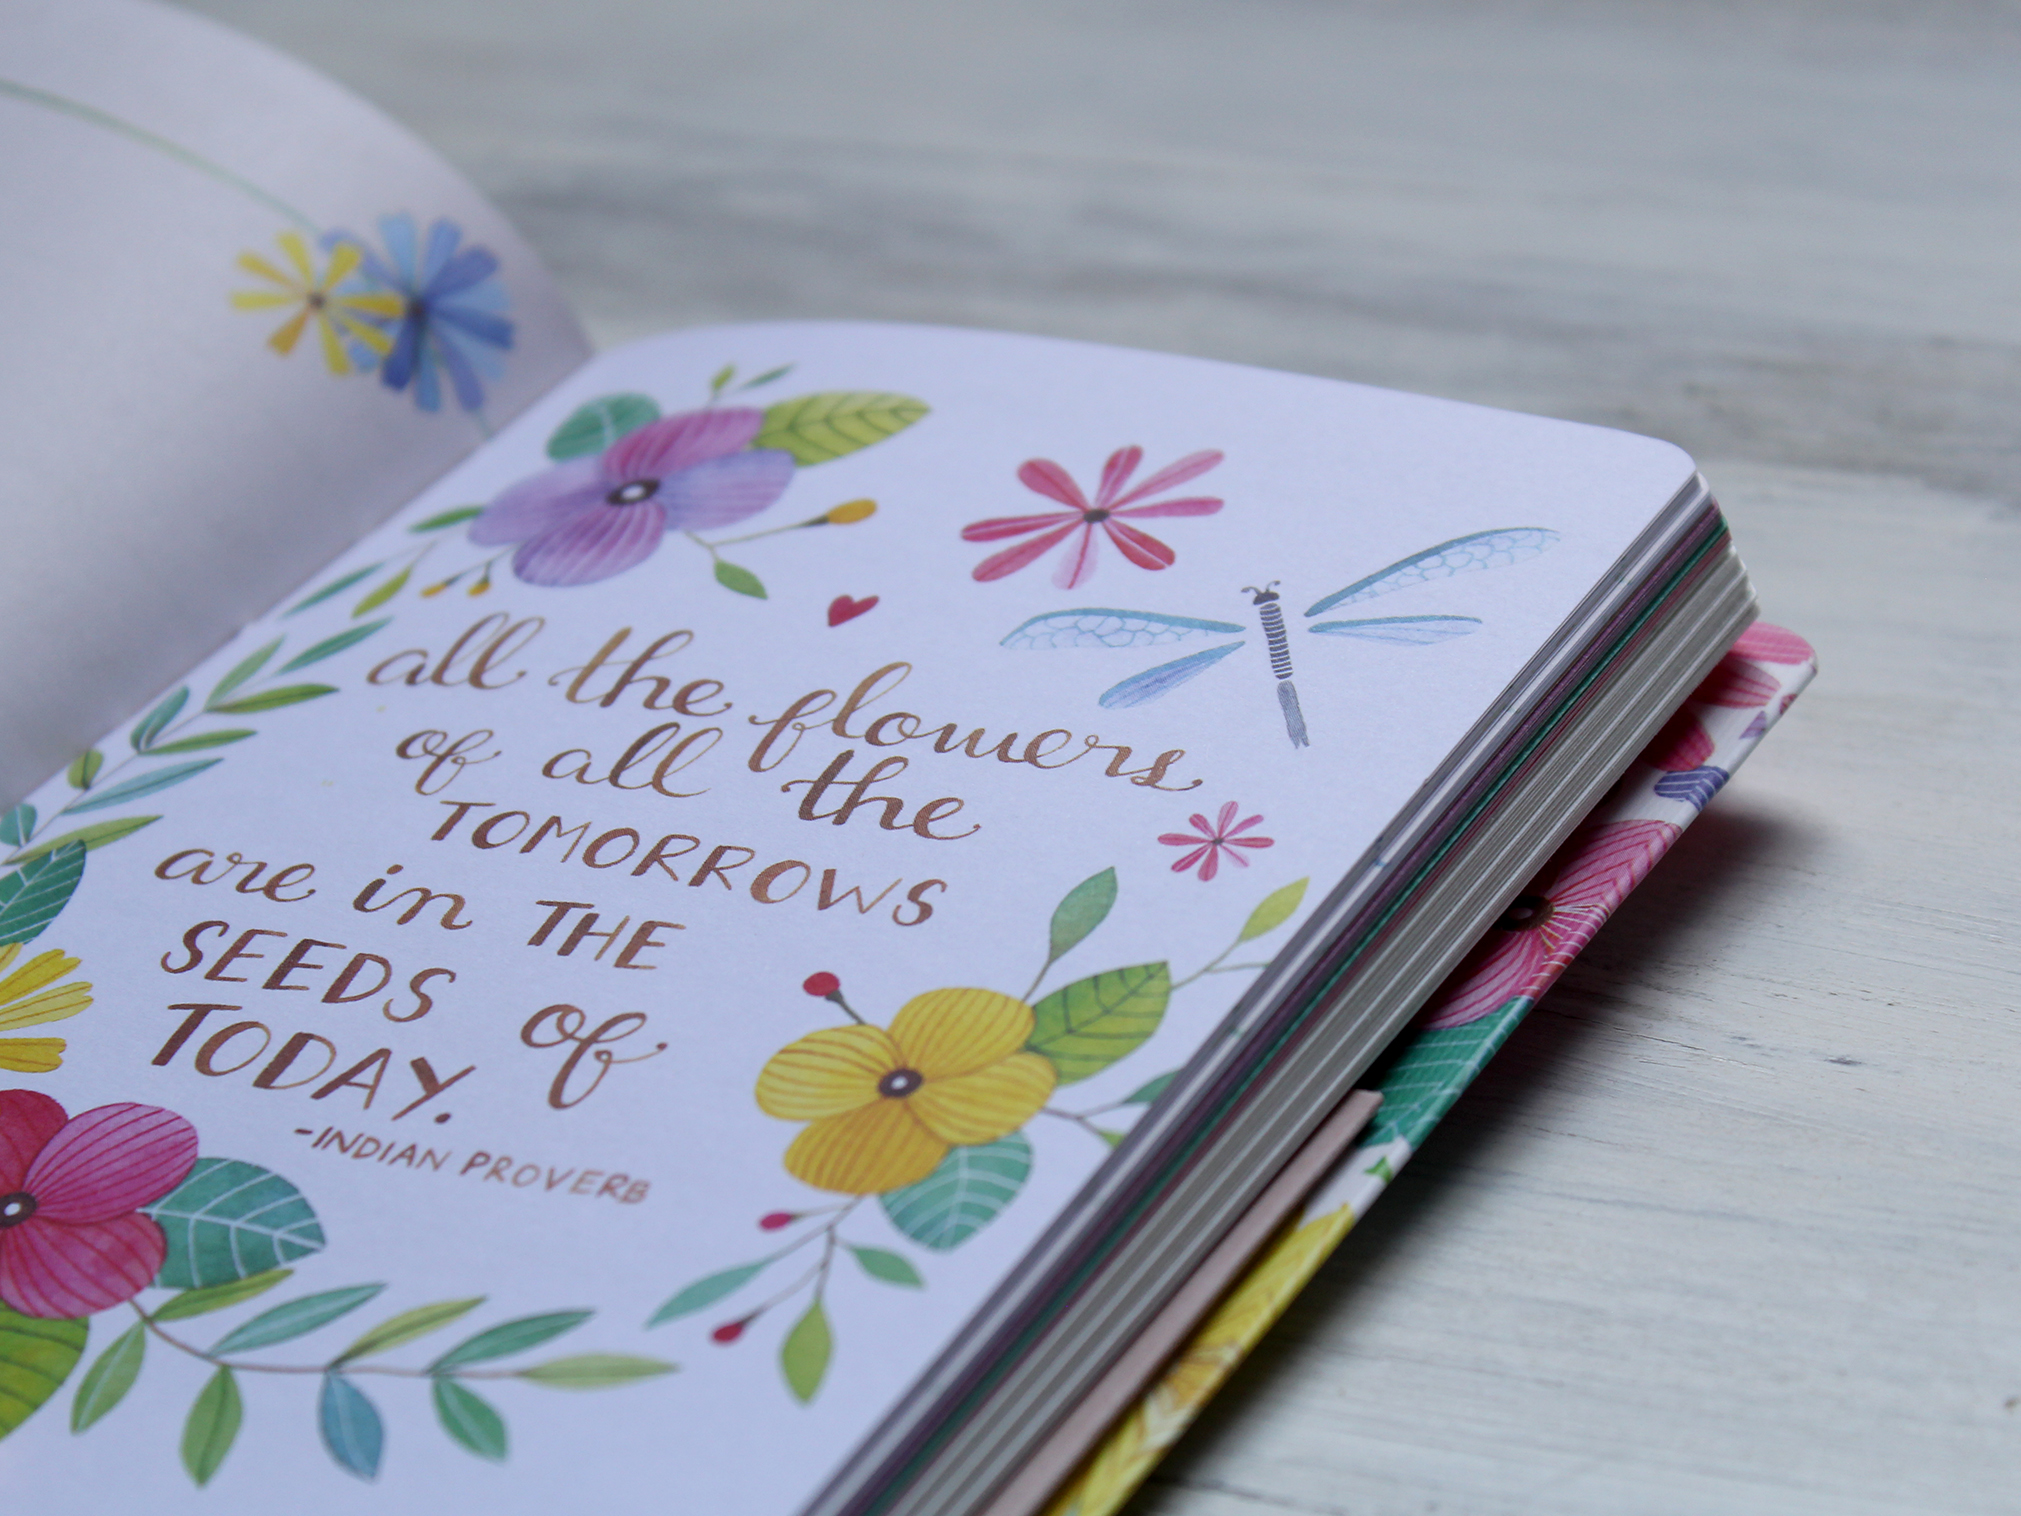 all the flowers
of all the
TOMORROWS
are in THE
SEEDS of
TODAY.
-INDIAN PROVERB